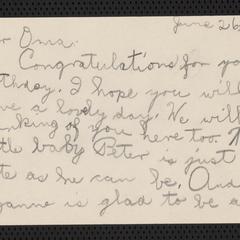 June 26
Oma.
Congratulations for yo
thday. I hope you will
ve a lovely day. We will
nking of you here too.
tle baby Peter is just
te as he can be. And
zanne is glad to be a